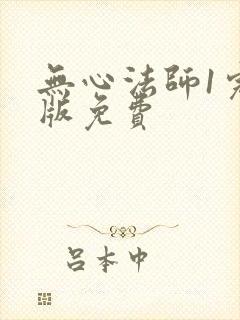 無心法師1完
版免費
呂本中